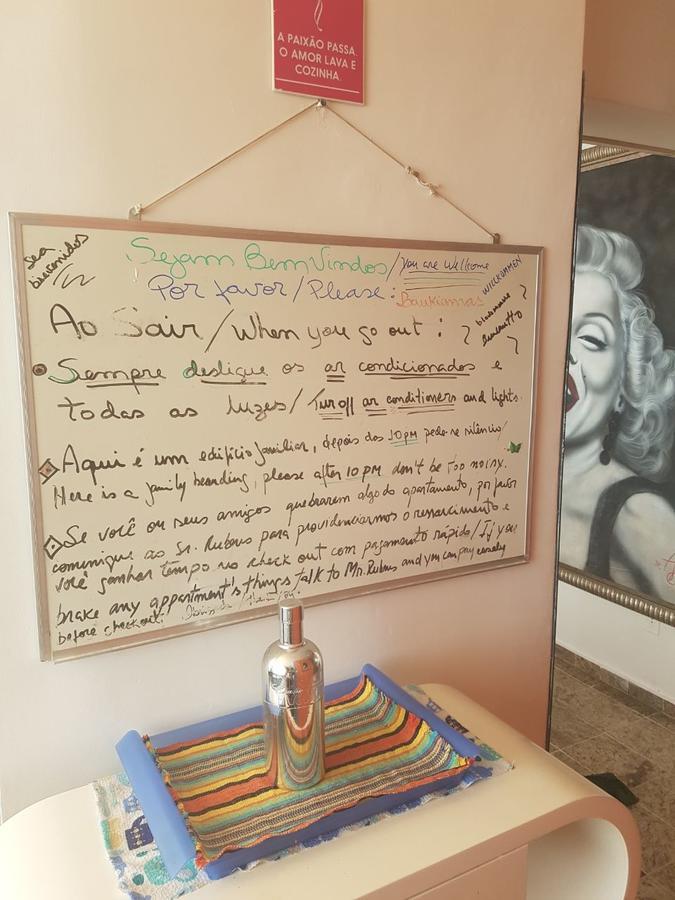 A PAIXÃO PASSA.
O AMOR LAVA E
COZINHA.
Sea
bienvenidos
Sejam Bem Vindos / You are Wellcome
WILLKOMMEN
Por favor / Please:
Ao Sair / When you go out:
Sempre desligue os ar condicionados e
todas as luzes / Turn off ar conditioners and lights.
Aqui é um edifício familiar, depois das 10pm pede-se silêncio /
Here is a family beanding, please after 10 pm don't be too noisy.
Se você ou seus amigos quebrarem algo do apartamento, por favor
comunique ao Sr. Rubens para providenciarmos o ressarcimento e
você ganhar tempo no check out com pagamento rápido / If you
brake any appartment's things talk to Mr. Rubens and you can pay
before checkout.